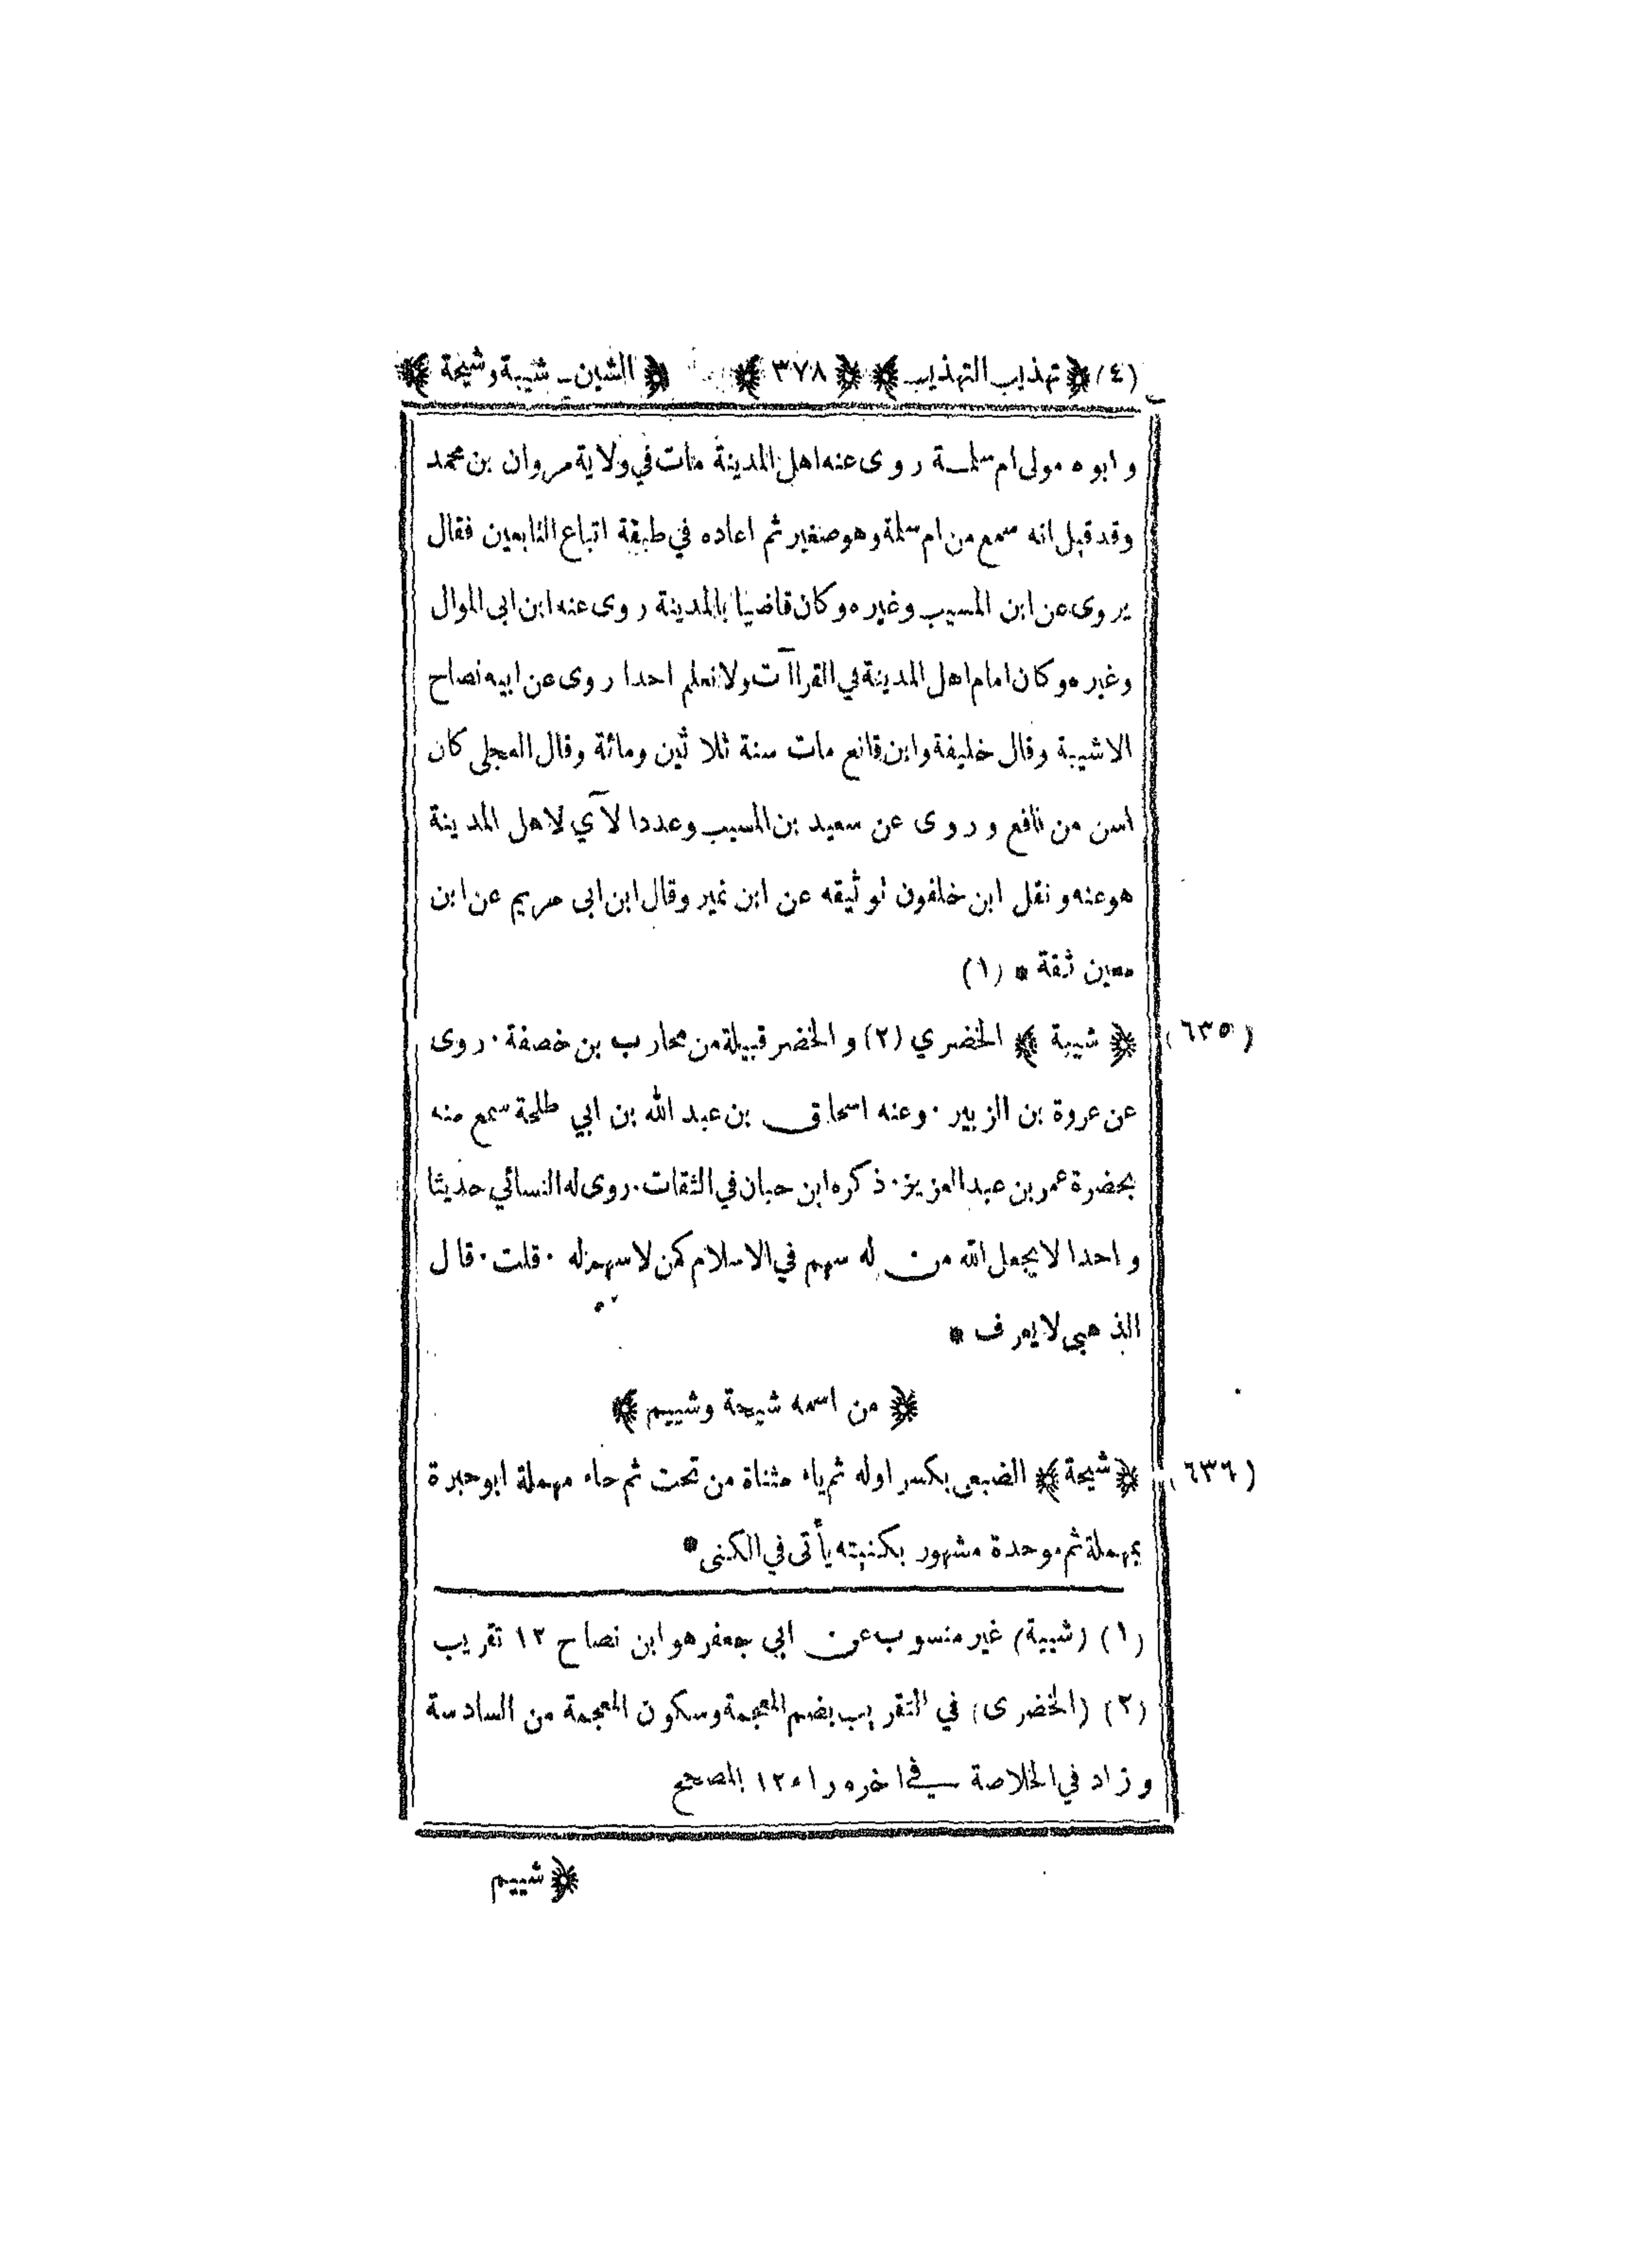 (٤) ﴿تهذيب التهذيب﴾ ﴿٣٧٨﴾ ﴿الشين ـ شيبة وشيحة﴾
وابوه مولى ام سلمة روى عنه اهل المدينة مات في ولاية مروان بن محمد
وقد قيل انه سمع من ام سلمة وهو صغير ثم اعاده في طبقة اتباع التابعين فقال
يروى عن ابن المسيب وغيره وكان قاضيا بالمدينة روى عنه ابن ابى الموال
وغيره وكان امام اهل المدينة في القراآت ولا نعلم احدا روى عن ابيه نصاح
الا شيبة وقال خليفة وابن قانع مات سنة ثلاثين ومائة وقال العجلى كان
اسن من نافع وروى عن سعيد بن المسيب وعدد الآي لاهل المدينة
هو عنه ونقل ابن خلفون توثيقه عن ابن نمير وقال ابن ابى مريم عن ابن
معين ثقة * (١)
(٦٣٥) ﴿شيبة﴾ الخضري (٢) والخضر قبيلة من محارب بن خصفة · روى
عن عروة بن الزبير · وعنه اسحاق بن عبد الله بن ابي طلحة سمع منه
بحضرة عمر بن عبد العزيز · ذكره ابن حبان في الثقات · روى له النسائي حديثا
واحدا لا يجعل الله من له سهم في الاسلام كمن لا سهم له · قلت · قال
الذهبى لا يعرف *
﴿من اسمه شيحة وشييم﴾
(٦٣٦) ﴿شيحة﴾ الضبعى بكسر اوله ثم ياء مثناة من تحت ثم حاء مهملة ابو حبرة
بمهملة ثم موحدة مشهور بكنيته يأتى في الكنى *
(١) (شيبة) غير منسوب عن ابي جعفر هو ابن نصاح ١٢ تقريب
(٢) (الخضرى) في التقريب بضم المعجمة وسكون المعجمة من السادسة
وزاد في الخلاصة في اخره راء ١٢ المصحح
﴿شييم